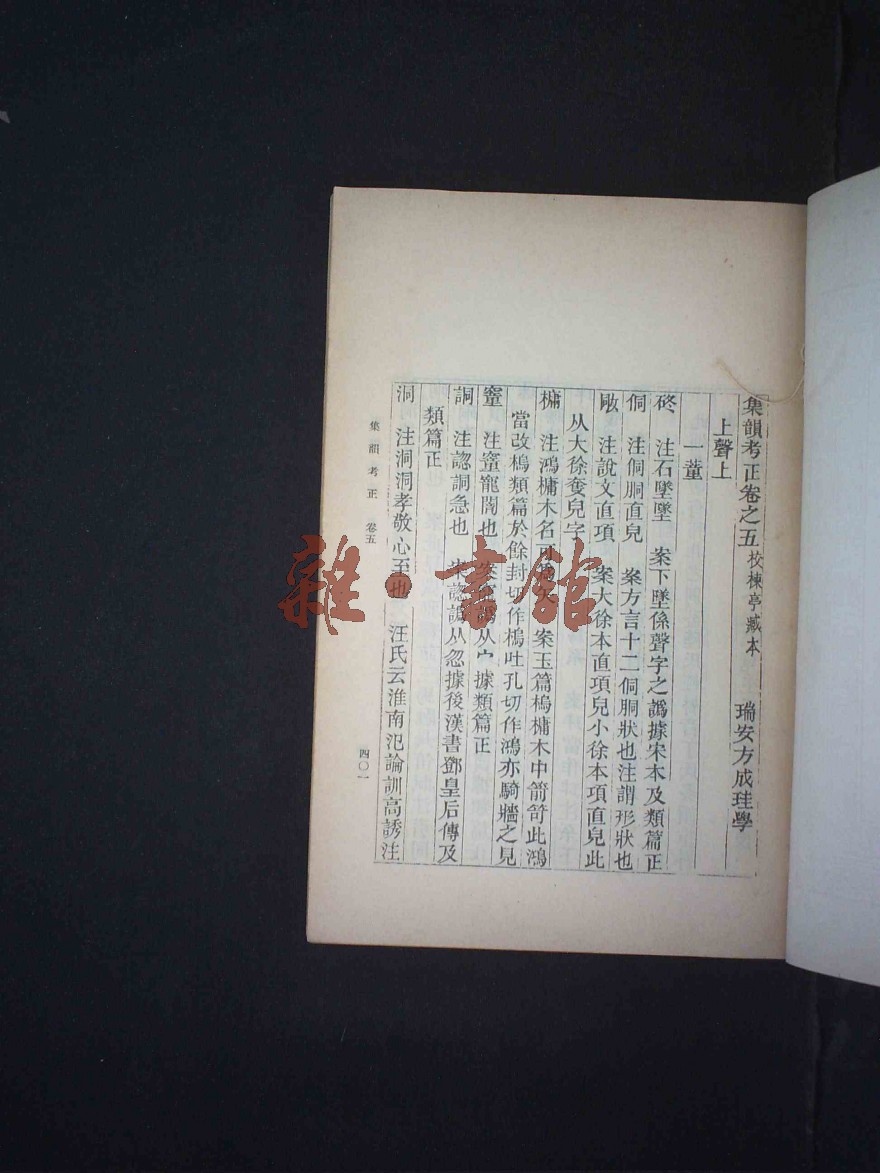 集韻考正卷之五 校楝亭臧本 瑞安方成珪學
上聲上
一董
硶 注石墜墜 案下墜係聲字之譌據宋本及類篇正
侗 注侗胴直皃 案方言十二侗胴狀也注謂形狀也
注說文直項 案大徐本直項皃小徐本項直皃此
从大徐奪皃字
槦 注鴻槦木名可 案玉篇槝槦木中箭笴此鴻
當改槝類篇於餘封切作槝吐孔切作鴻亦騎牆之見
注寵闥也 从宀 據類篇正
詷 注認詷急也 案認譌从忽據後漢書鄧皇后傳及
類篇正
洞 注洞洞孝敬心至也 汪氏云淮南氾論訓高誘注
集韻考正 卷五
四〇一
雜·書館